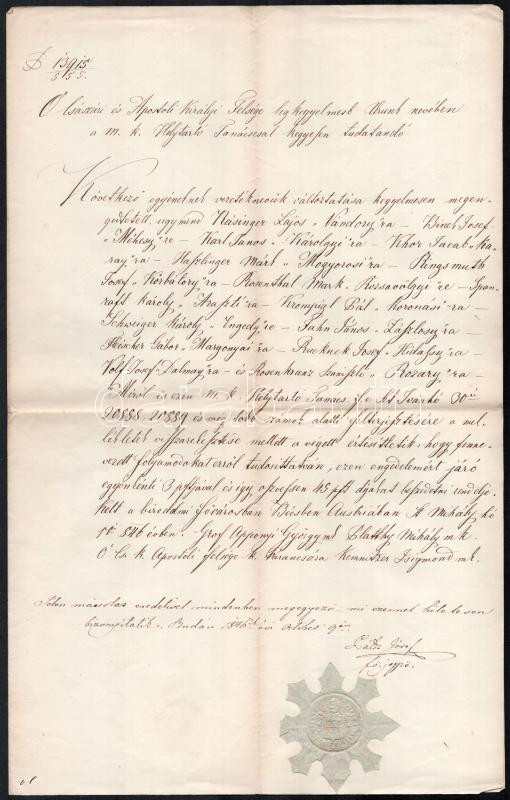 13915
O Császári és Apostoli Királyi Felsége legkegyelmesb Urunk nevében
a m. k. Helytartó Tanácsсsal kegyesen tudatandó
Következő egyéneknek vezetékneveik változtatása kegyelmesen megen-
gedtetett, ugymind Käsinger Lajos „Vándory"ra – Binet Josef
„Méhesy"re – Karl János „Károlyi"ra – Khor Jacab „Ka-
ray"ra – Haszlinger Márk „Mogyorosi"ra – Ringsmuth
Josef „Körbátory"ra – Rosenthal Mark „Rózsavölgyi"re – Span-
raft Károly „Arapti"ra – Krompigl Pál „Koronási"ra –
Schweiger Károly „Engedy"re – Fahn János „Zászlósy"ra –
Fleischer Gábor „Margonyai"ra – Rucknek Josef „Hidassy"ra –
Volf Josef „Dalmay"ra – és Rosenkranz Szaniszló „Rozary"ra –
Miről is ezen m. k. Helytartó Tanács f. e. Sz. Ivánhó 30án
20888, 20889 és még több számok alatti felterjesztésére a mel-
lékletek visszarekesztése mellett a végett értesíttetik, hogy fenne-
vezett folyamodókat erről tudosittatván, ezen engedelemért járó
egyenkénti 3 pftjával és egy összesen 45 pft díjakat beszedetni rendelje
Kelt a birodalmi fővárosban Bécsben Austriában Sz. Mihály hó
1én 846 évben. – Gróf Apponyi György mk. Platthy Mihály mk.
Ő Cs. k. Apostoli felsége k. parancsára Kemniczer Zsigmond mk.
Jelen másolat eredetivel mindenben megegyező – mi ezennel hitelesen
bizonyitatik. Budán 1846ik évi October 9én
József